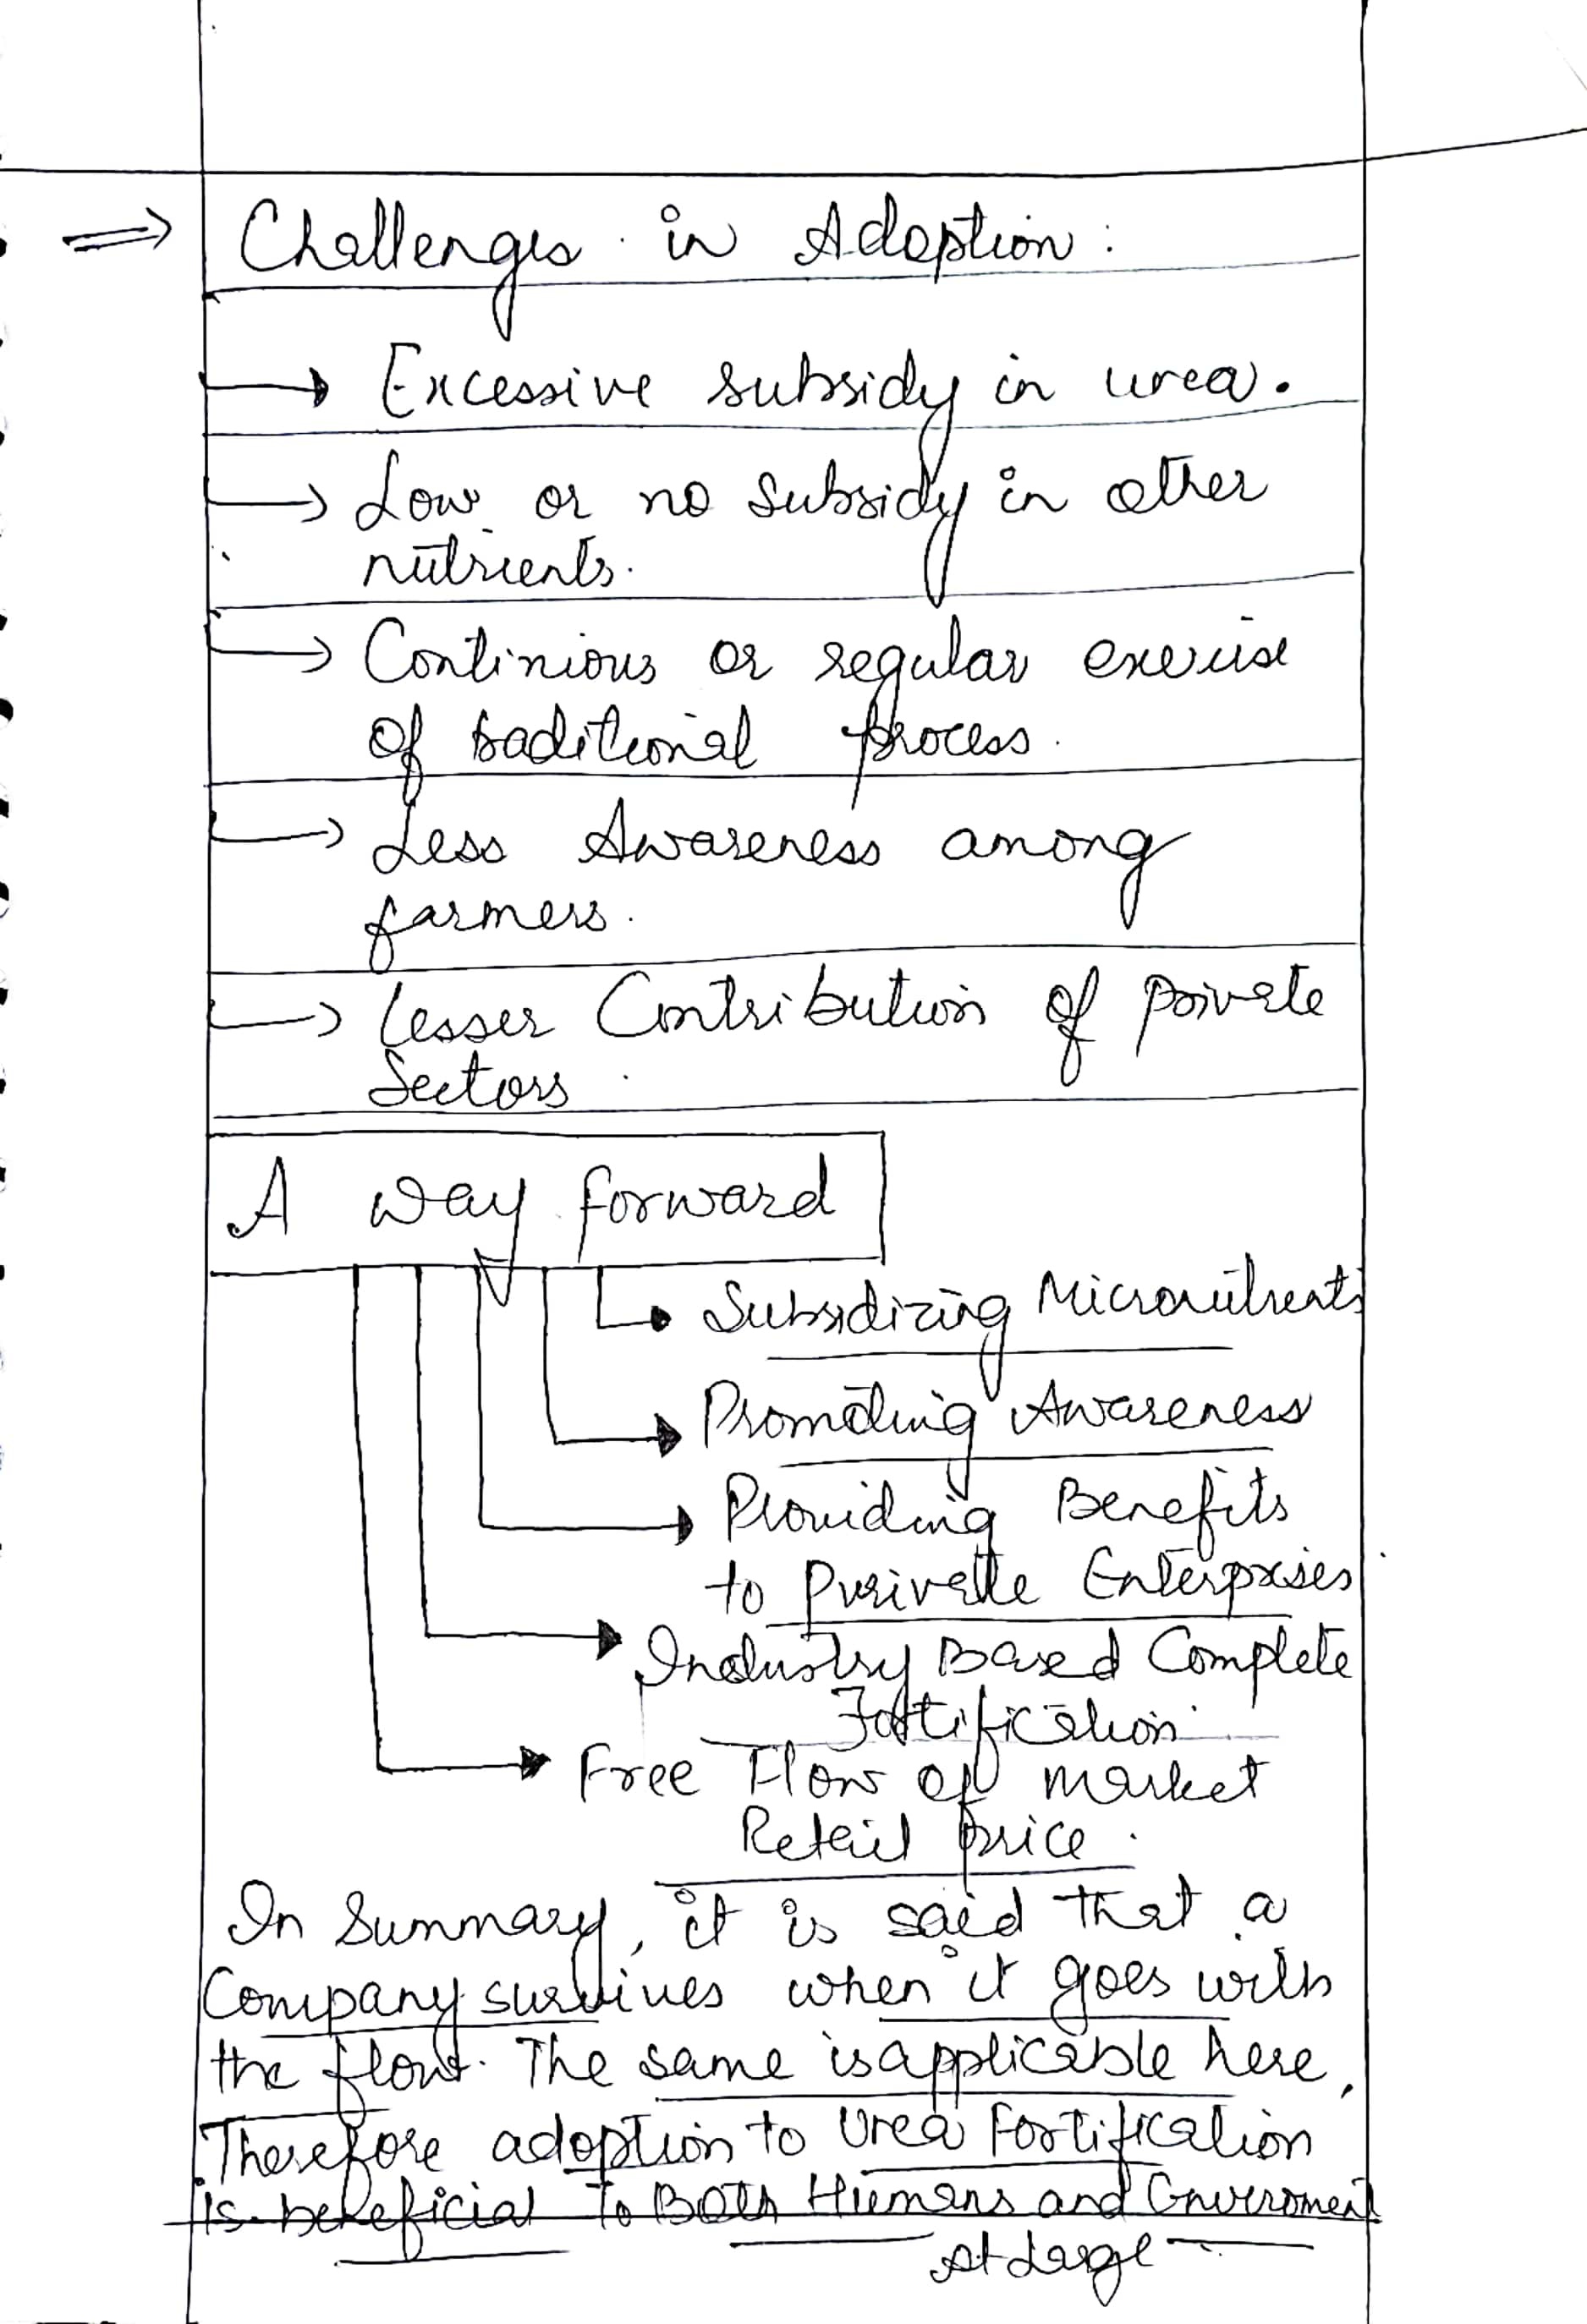 ⇒ Challenges in Adoption:
→ Excessive subsidy in urea.
→ Low or no subsidy in other
nutrients.
→ Continious or regular exercise
of traditional process.
→ Less Awareness among
farmers.
→ Lesser Contribution of private
Sectors.
A way forward
Subsidizing Micronutrients
Promoting Awareness
Providing Benefits
to Purivate Enterprises
Industry Based Complete
Fortification.
Free Flow of market
Retail price.
In Summary, it is said that a
Company survives when it goes with
the flow. The same is applicable here,
Therefore adoption to Urea Fortification
is beneficial To Both Humans and Enviroment
At Large